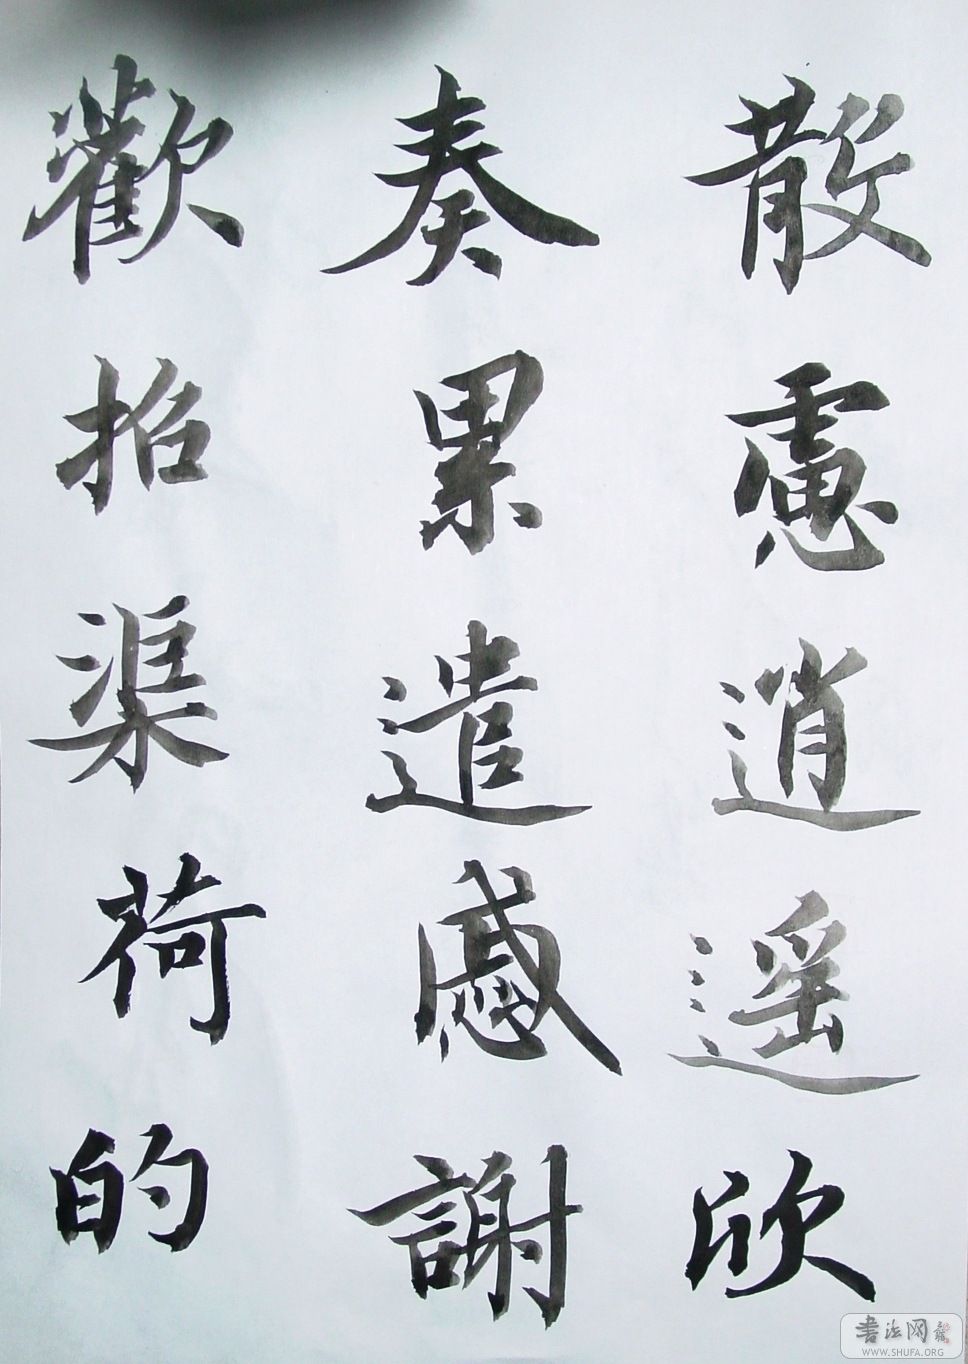 散慮逍遥欣
奏累遣慼謝
歡招渠荷的
書法网
WWW.SHUFA.ORG